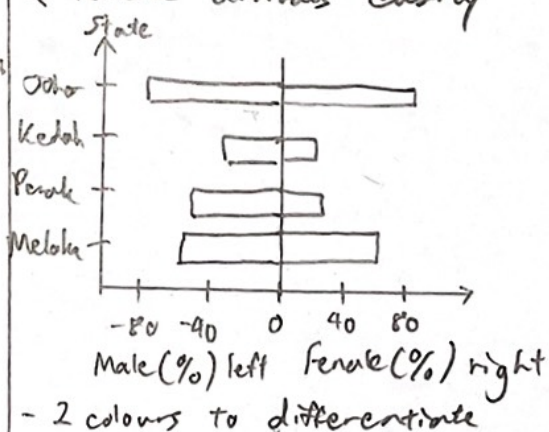 State
Johor
Kedah
Perak
Melaka
-80 -40 0 40 80
Male(%) left Female(%) right
- 2 colours to differentiate